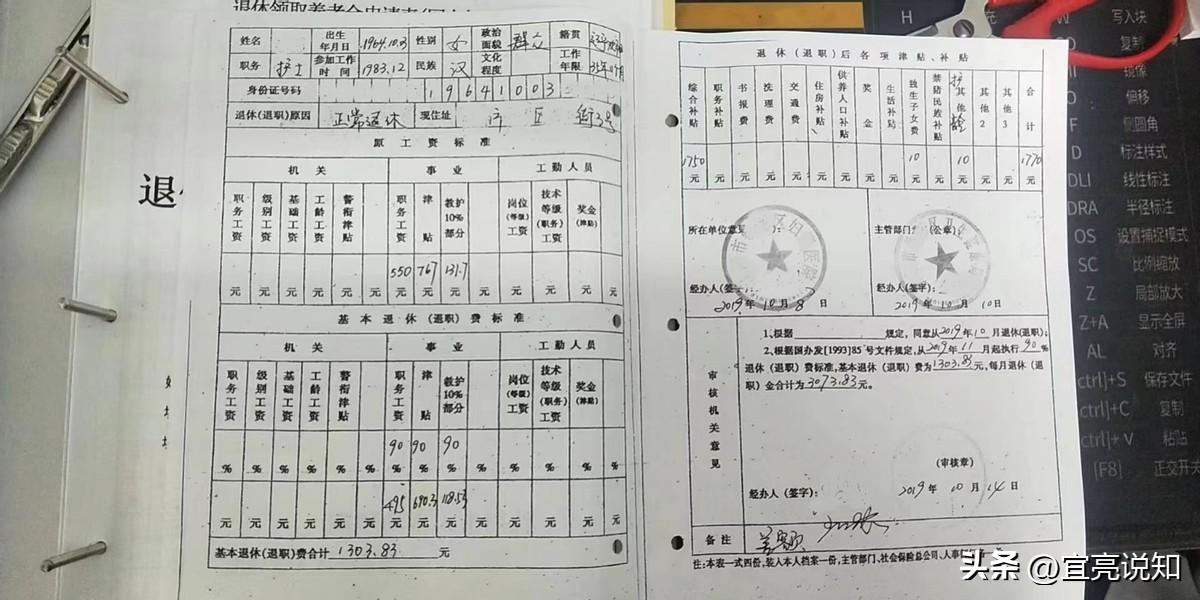 退休领取养老金申请表
退
姓名 出生年月日 1964.10.3 性别 女 政治面貌 群众 籍贯
职务 护士 参加工作时间 1983.12 民族 汉 文化程度 工作年限
身份证号码 19641003
退休(退职)原因 正常退休 现住址 市 区 街3号
原工资标准
机关 事业 工勤人员
职务工资 级别工资 基础工资 工龄工资 警衔津贴 职务工资 津贴 教护10%部分 岗位(等级)工资 技术等级(职务)工资 奖金(津贴)
550 767 131.7
元 元 元 元 元 元 元 元 元 元 元 元 元 元
基本退休(退职)费标准
机关 事业 工勤人员
职务工资 级别工资 基础工资 工龄工资 警衔津贴 职务工资 津贴 教护10%部分 岗位(等级)工资 技术等级(职务)工资 奖金(津贴)
90 90 90
% % % % % % % % % % % % % %
495 690.3 118.53
元 元 元 元 元 元 元 元 元 元 元 元 元 元
基本退休(退职)费合计 1303.83 元
退休(退职)后各项津贴、补贴
综合补贴 职务补贴 书报费 洗理费 交通费 住房补贴 供养人口补贴 奖金 生活补贴 独生子女费 禁猪民族补贴 其他 护龄 其他2 其他3 合计
1750 10 10 1770
元 元 元 元 元 元 元 元 元 元 元 元 元 元 元
所在单位意见 ): 主管部门 (公章):
经办人(签 经办人(签字):
2019年10月8日 2019年10月10日
审核机关意见
1、根据 规定,同意从2019年10月退休(退职);
2、根据国办发[1993]85号文件规定,从2019年11月起执行90%
退休(退职)费标准,基本退休(退职)费为1303.83元,每月退休(退
职)金合计为3073.83元。
(审核章)
经办人(签字): 2019年10月14日
备注
注:本表一式四份,装入本人档案一份,主管部门、社会保险总公司、人事
H W 写入块
复制
镜像
O 偏移
F 倒圆角
D 标注样式
DLI 线性标注
DRA 半径标注
OS 设置捕捉模式
SC 比例缩放
Z 局部放大
Z+A 显示全屏
AL 对齐
ctrl]+S 保存文件
ctrl]+C 复制
ctrl]+v 粘贴
[F8] 正交开关
头条 @宜亮说知